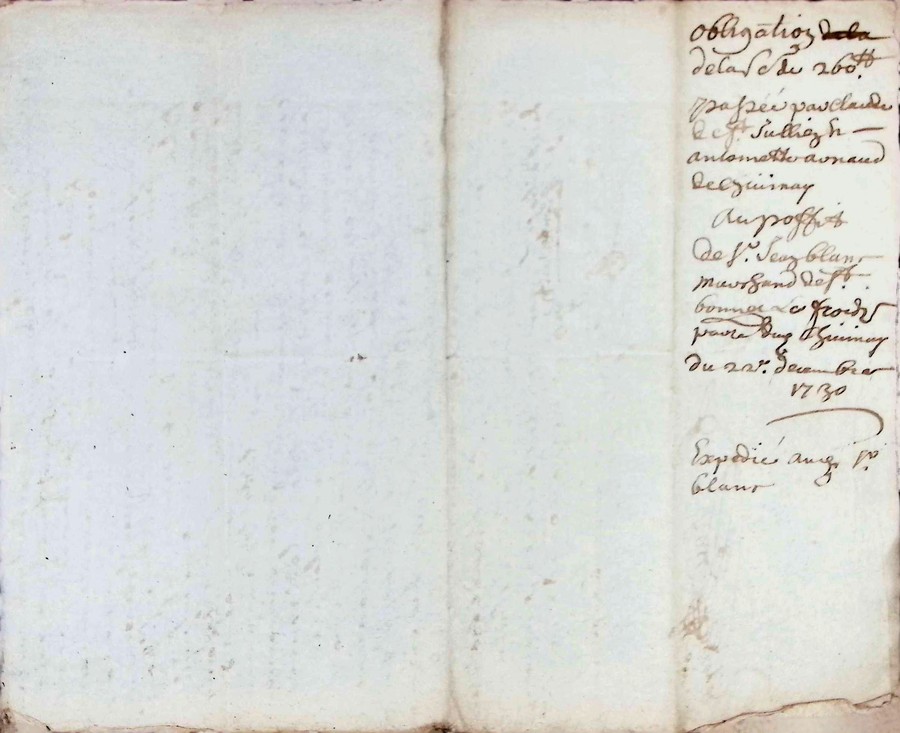 obligation de la
de la so^e de 260^tt.
passée par claude
de s^t Jullien &
antoinette arnaud
de
au proffit
de s^r. Jean blanc
marchand de s^t.
bonnet Le froid
par
du 22^e. decembre
1730
Expedié aud. s^r.
blanc